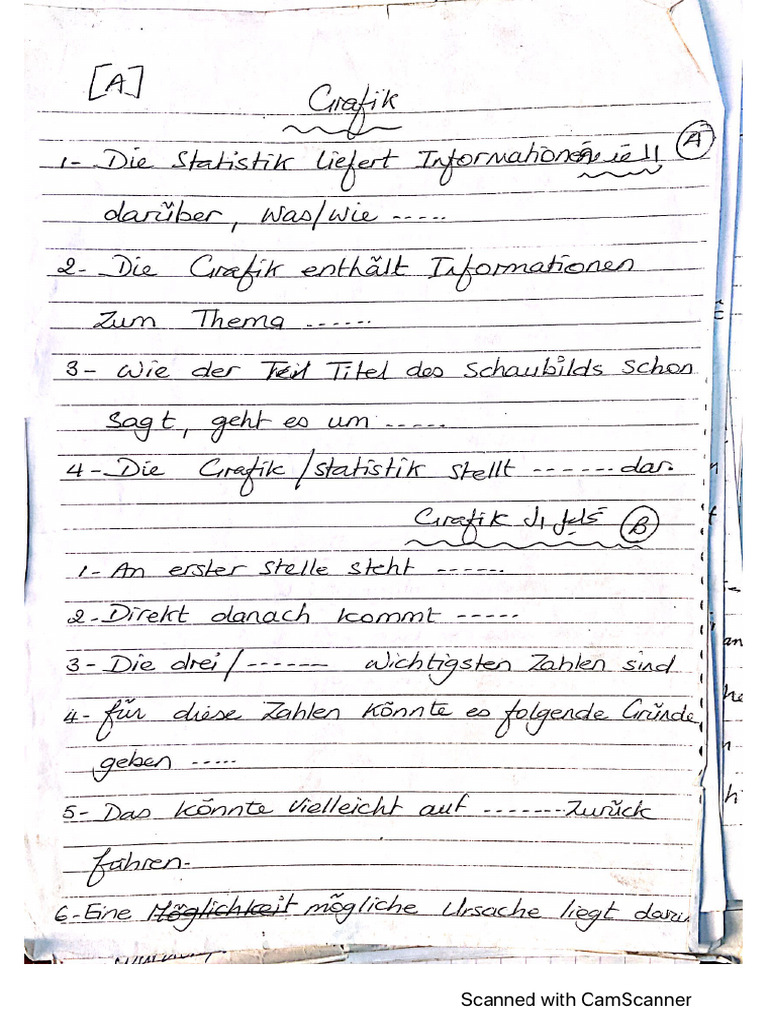 [A]
Grafik
A
1- Die Statistik liefert Informationen
darüber, was/wie .....
2- Die Grafik enthält Informationen
zum Thema ......
3- Wie der Titel des Schaubilds schon
sagt, geht es um .....
4- Die Grafik/Statistik stellt ...... dar.
Grafik B
1- An erster Stelle steht ......
2- Direkt danach kommt .....
3- Die drei/ ------ wichtigsten Zahlen sind
4- für diese Zahlen könnte es folgende Gründe
geben .....
5- Das könnte vielleicht auf ....... zurück
führen.
6- Eine Möglichkeit mögliche Ursache liegt
Scanned with CamScanner